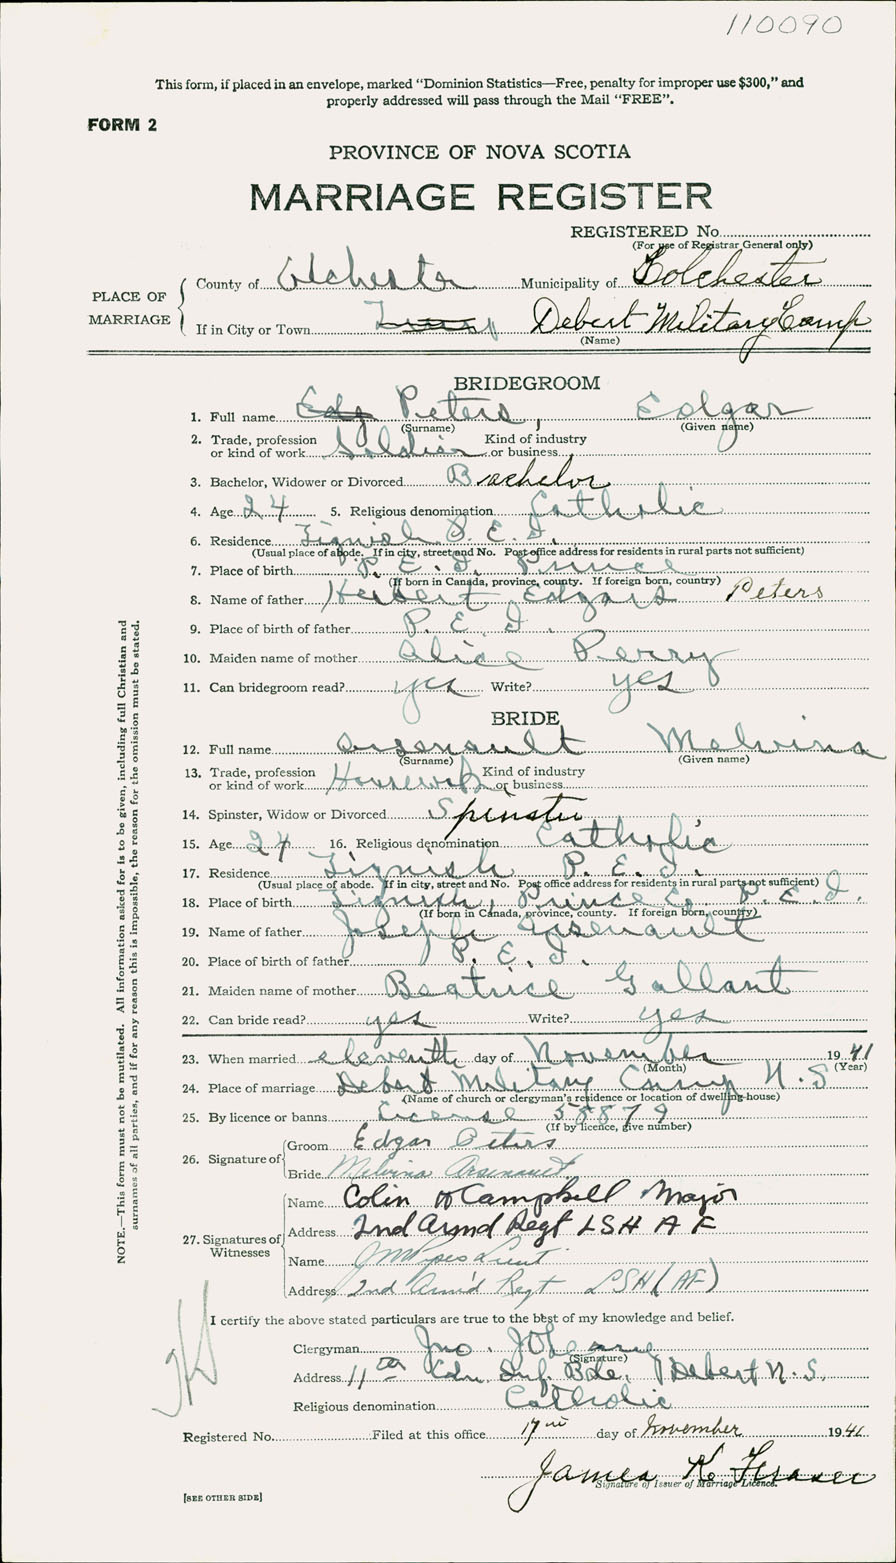 110090
This form, if placed in an envelope, marked "Dominion Statistics—Free, penalty for improper use $300," and
properly addressed will pass through the Mail "FREE".
FORM 2
PROVINCE OF NOVA SCOTIA
MARRIAGE REGISTER
REGISTERED No.
(For use of Registrar General only)
PLACE OF MARRIAGE
County of Colchester Municipality of Colchester
If in City or Town Debert Military Camp
(Name)
BRIDEGROOM
1. Full name Peters, Edgar
(Surname) (Given name)
2. Trade, profession or kind of work Soldier Kind of industry or business
3. Bachelor, Widower or Divorced Bachelor
4. Age 24 5. Religious denomination Catholic
6. Residence Tignish P. E. I.
(Usual place of abode. If in city, street and No. Post office address for residents in rural parts not sufficient)
7. Place of birth P. E. I. Prince
(If born in Canada, province, county. If foreign born, country)
8. Name of father Herbert Edgars Peters
9. Place of birth of father P. E. I.
10. Maiden name of mother Alice Perry
11. Can bridegroom read? yes Write? yes
BRIDE
12. Full name Arsenault Melvina
(Surname) (Given name)
13. Trade, profession or kind of work Housewife Kind of industry or business
14. Spinster, Widow or Divorced Spinster
15. Age 24 16. Religious denomination Catholic
17. Residence Tignish P. E. I.
(Usual place of abode. If in city, street and No. Post office address for residents in rural parts not sufficient)
18. Place of birth Tignish, Prince Co. P. E. I.
(If born in Canada, province, county. If foreign born, country)
19. Name of father Joseph Arsenault
20. Place of birth of father P. E. I.
21. Maiden name of mother Beatrice Gallant
22. Can bride read? yes Write? yes
23. When married eleventh day of November 1941
(Month) (Year)
24. Place of marriage Debert Military Camp N. S
(Name of church or clergyman's residence or location of dwelling-house)
25. By licence or banns License 58879
(If by licence, give number)
26. Signature of
Groom Edgar Peters
Bride Melvina Arsenault
27. Signatures of Witnesses
Name Colin Campbell Major
Address 2nd Armd Regt LSH A F
Name Lieut
Address 2nd Arm'd Regt LSH (AF)
I certify the above stated particulars are true to the best of my knowledge and belief.
Clergyman Jno.
(Signature)
Address 11th Cdn. Inf. Bde. Debert N. S.
Religious denomination Catholic
Registered No. Filed at this office 17th day of November 1941
James K. Fraser
Signature of Issuer of Marriage Licence.
[SEE OTHER SIDE]
NOTE.—This form must not be mutilated. All information asked for is to be given, including full Christian and
surnames of all parties, and if for any reason this is impossible, the reason for the omission must be stated.